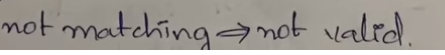 not matching ⇒ not valid.